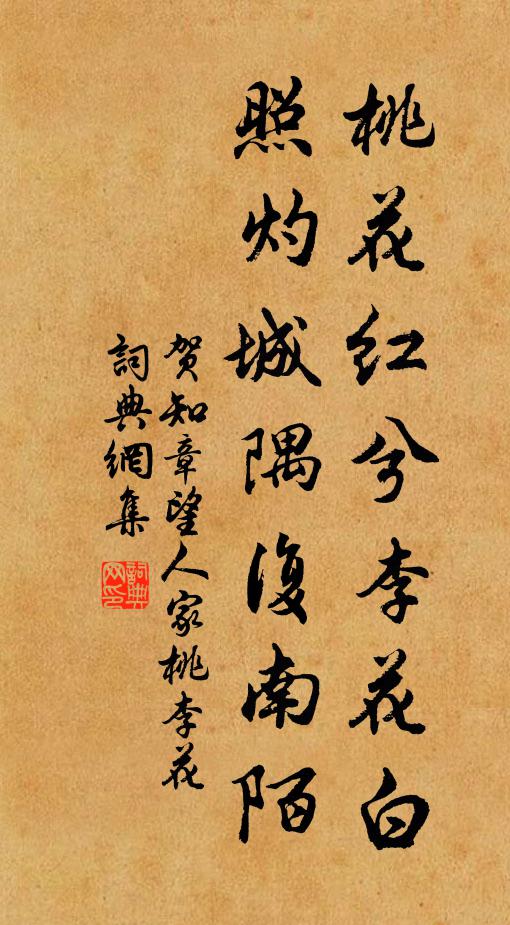 桃花红兮李花白
照灼城隅复南陌
贺知章望人家桃李花
詞典網集
詞典
网印